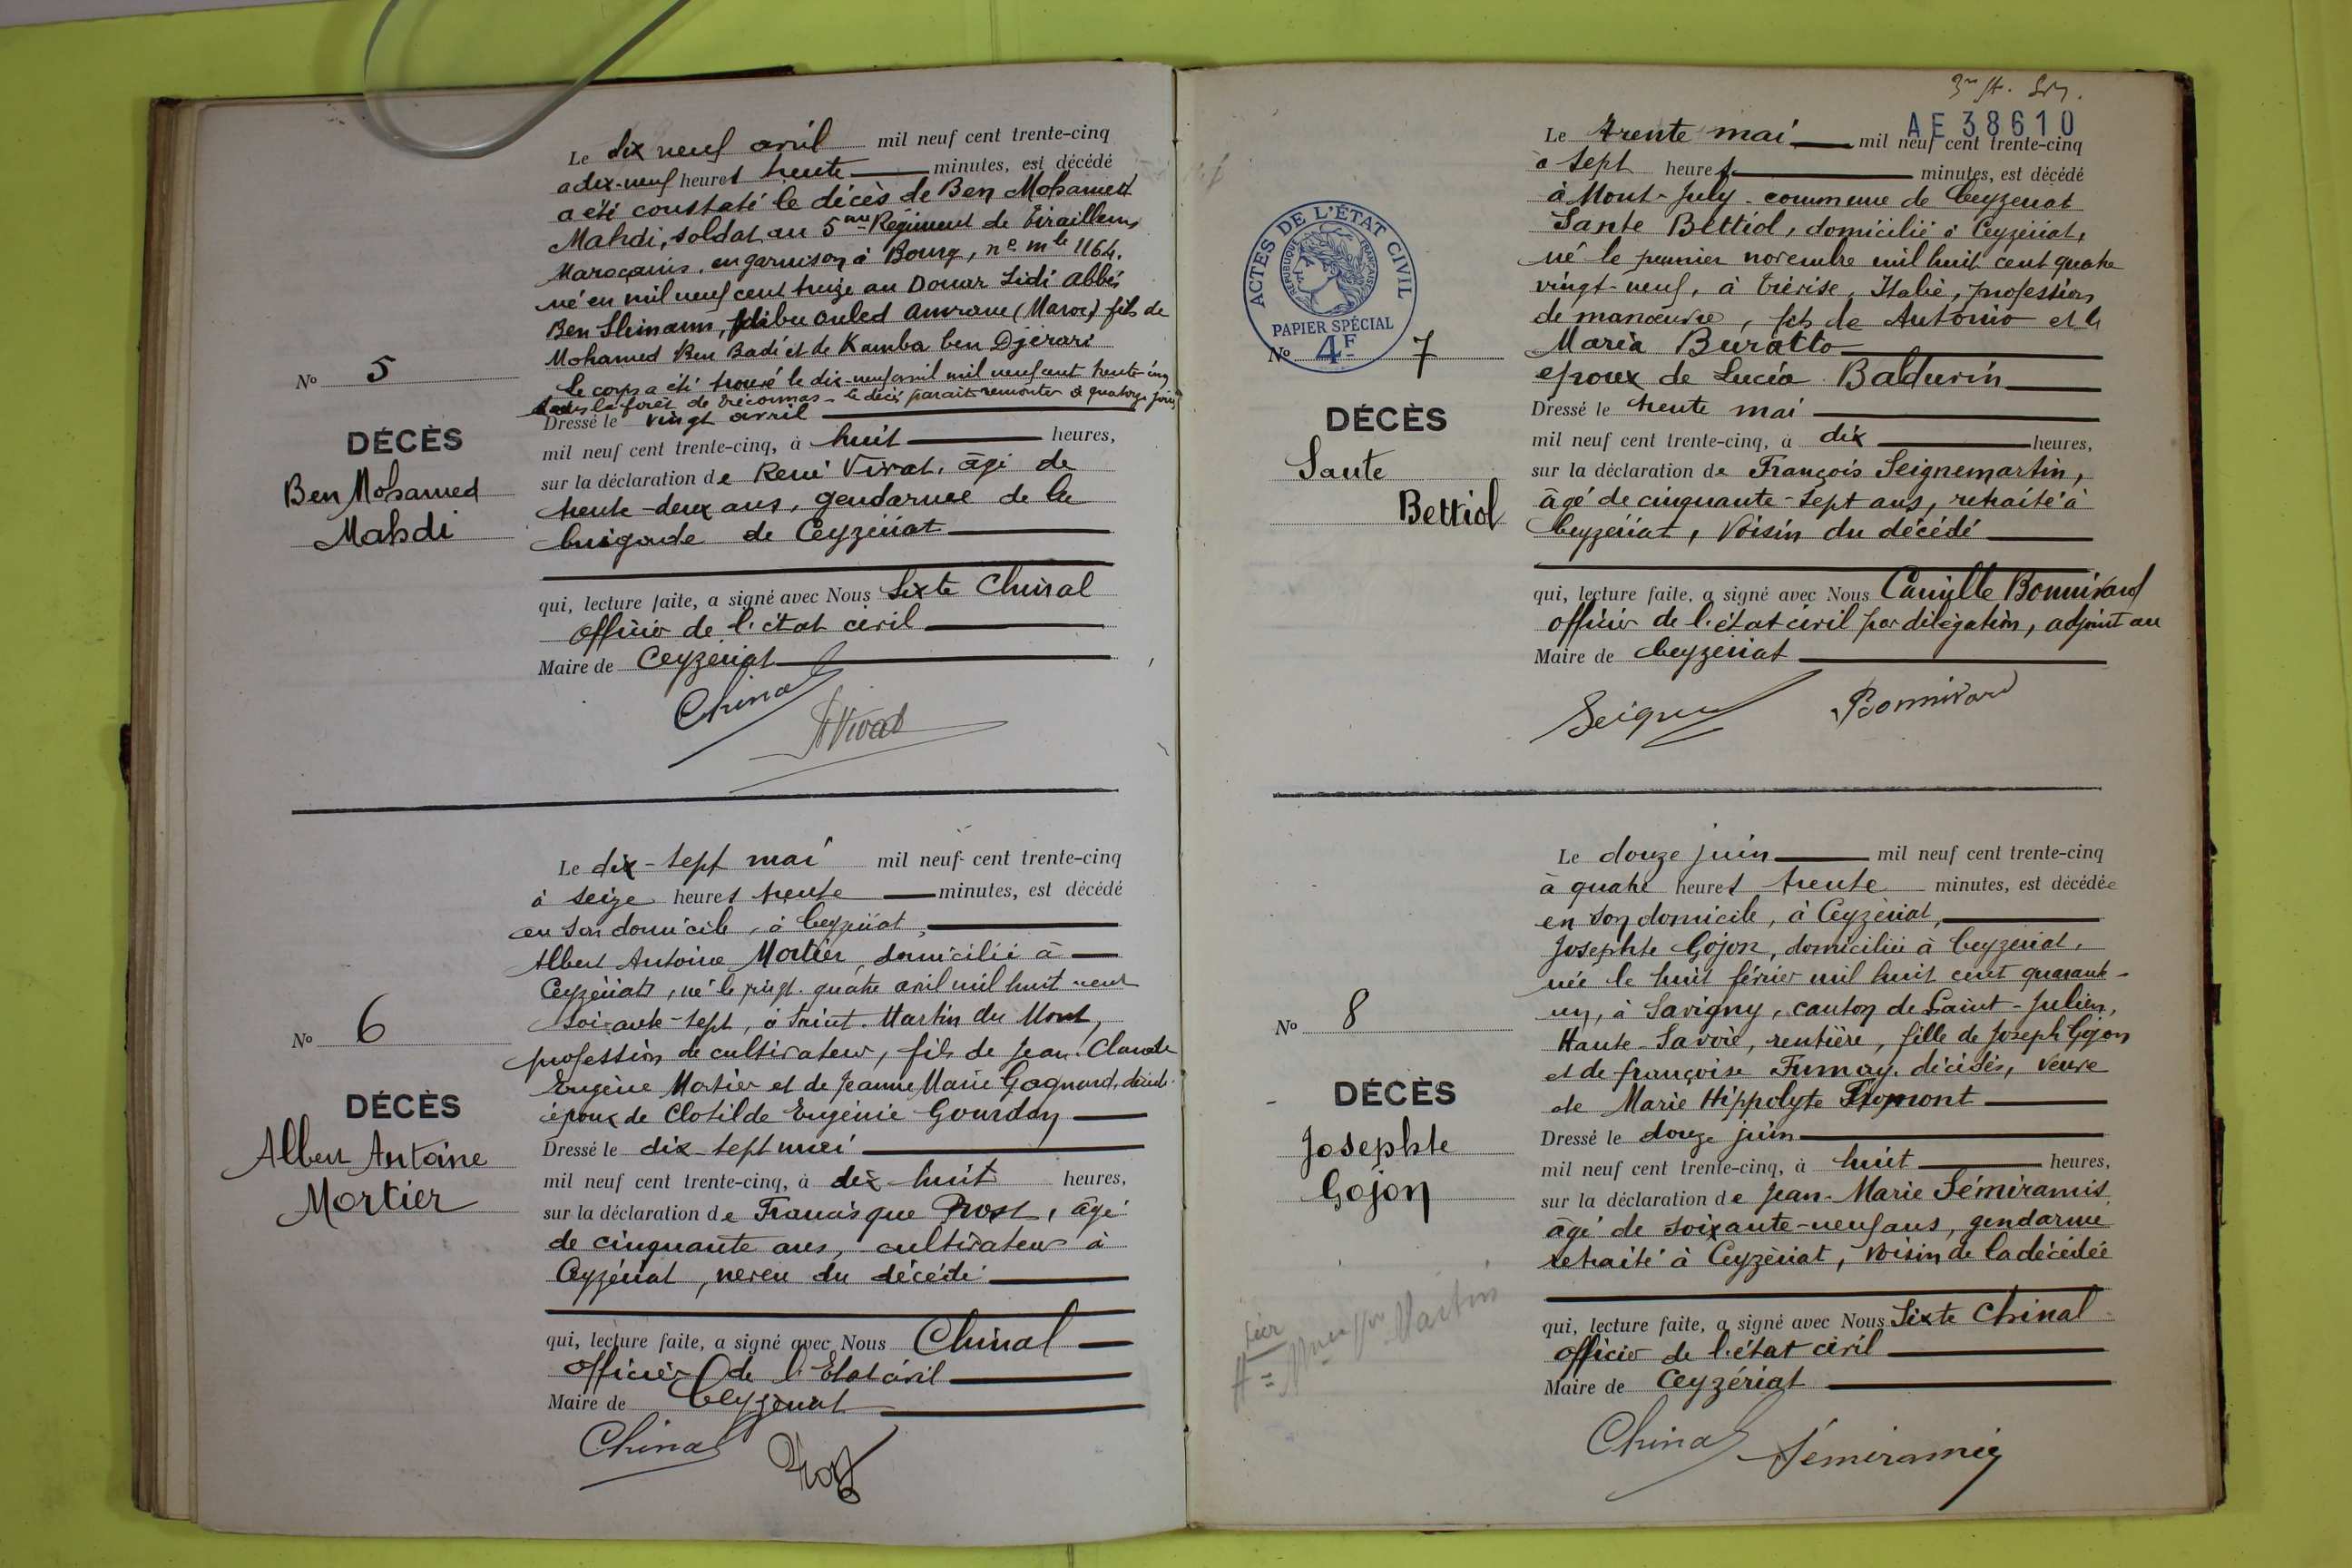 Le dix neuf avril mil neuf cent trente-cinq
à dix-neuf heures trente minutes, est décédé
a été constaté le décès de Ben Mohamed
Mahdi, soldat au 5me Régiment de Tirailleurs
Marocains, en garnison à Bourg, no mle 1164,
né en mil neuf cent treize au Douar Sidi Abbés
Ben Slimann, tribu Ouled Amrane (Maroc) fils de
Mohamed Ben Badi et de Kamba ben Djérari
Le corps a été trouvé le dix-neuf avril mil neuf cent trente-cinq
dans la forêt de Tréconnas - le décès parait remonter à quatorze jours
No 5
DÉCÈS
Ben Mohamed
Mahdi
Dressé le vingt avril
mil neuf cent trente-cinq, à huit heures,
sur la déclaration de René Vivat, âgé de
trente-deux ans, gendarme de la
brigade de Ceyzériat
qui, lecture faite, a signé avec Nous Sixte Chinal
officier de l'état civil
Maire de Ceyzériat
Chinal
Vivat
Le dix-sept mai mil neuf cent trente-cinq
à seize heures trente minutes, est décédé
en son domicile, à Ceyzériat,
Albert Antoine Mortier, domicilié à
Ceyzériat, né le vingt-quatre avril mil huit cent
soixante-sept, à Saint-Martin du Mont,
profession de cultivateur, fils de Jean Claude
Eugène Mortier et de Jeanne Marie Gagnard, décédés
époux de Clotilde Eugénie Gourdan
No 6
DÉCÈS
Albert Antoine
Mortier
Dressé le dix-sept mai
mil neuf cent trente-cinq, à dix-huit heures,
sur la déclaration de Francisque Prost, âgé
de cinquante ans, cultivateur à
Ceyzériat, neveu du décédé
qui, lecture faite, a signé avec Nous Chinal
officier de l'Etat civil
Maire de Ceyzériat
Chinal
Prost
AE 38610
Le trente mai mil neuf cent trente-cinq
à sept heures minutes, est décédé
à Mont-July - commune de Ceyzériat
Sante Bettiol, domicilié à Ceyzériat,
né le premier novembre mil huit cent quatre
vingt-neuf, à Trévise, Italie, profession
de manœuvre, fils de Antonio et de
Maria Buratto
époux de Lucia Baldurin
ACTES DE L'ÉTAT CIVIL
RÉPUBLIQUE FRANÇAISE
PAPIER SPÉCIAL
4F
No 7
DÉCÈS
Sante
Bettiol
Dressé le trente mai
mil neuf cent trente-cinq, à dix heures,
sur la déclaration de François Seignemartin,
âgé de cinquante-sept ans, retraité à
Ceyzériat, voisin du décédé
qui, lecture faite, a signé avec Nous Camille Bonnivard
officier de l'état civil par délégation, adjoint au
Maire de Ceyzériat
Bonnivard
Le douze juin mil neuf cent trente-cinq
à quatre heures trente minutes, est décédée
en son domicile, à Ceyzériat,
Josephte Gojon, domiciliée à Ceyzériat,
née le huit février mil huit cent quarante-
un, à Savigny, canton de Saint-Julien,
Haute-Savoie, rentière, fille de Joseph Gojon
et de françoise Fumay, décédés, veuve
de Marie Hippolyte Fromont
No 8
DÉCÈS
Josephte
Gojon
Dressé le douze juin
mil neuf cent trente-cinq, à huit heures,
sur la déclaration de Jean-Marie Sémiramis
âgé de soixante-neuf ans, gendarme
retraité à Ceyzériat, voisin de la décédée
qui, lecture faite, a signé avec Nous Sixte Chinal
officier de l'état civil
Maire de Ceyzériat
Chinal
Sémiramis